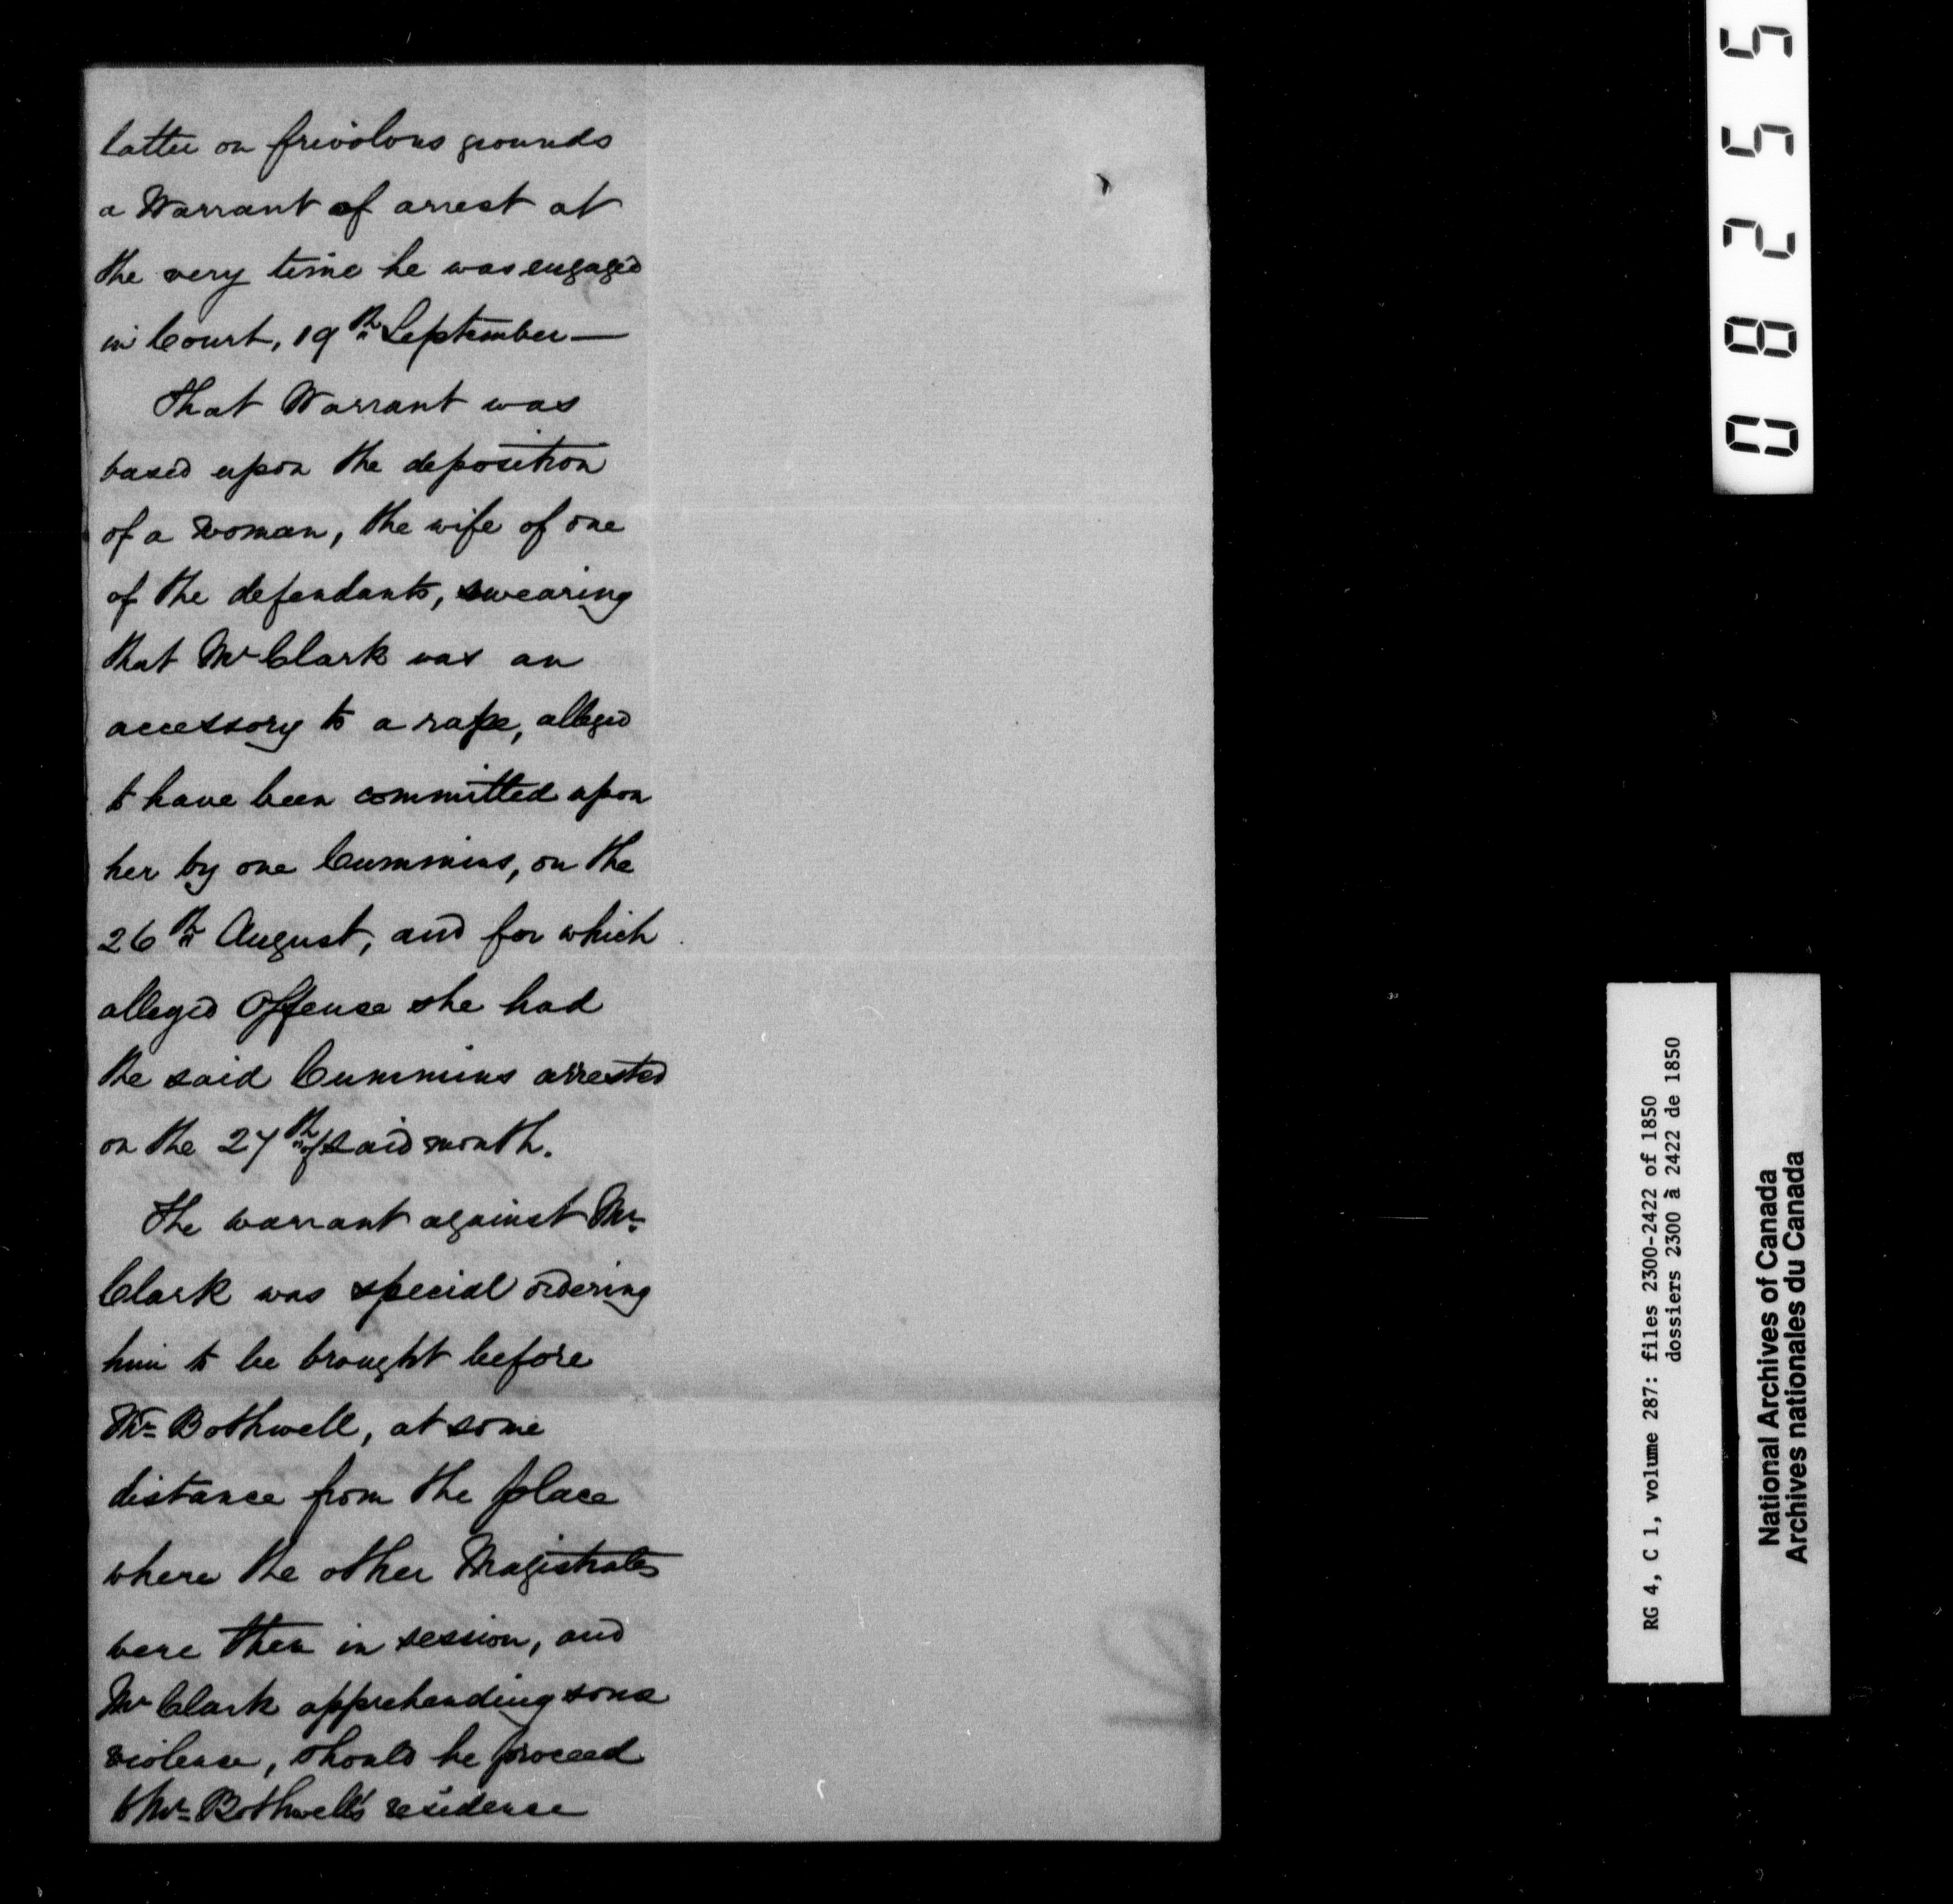 latter on frivolous grounds
a Warrant of arrest at
the very time he was engaged
in Court, 19th September —
That Warrant was
based upon the deposition
of a Woman, the wife of one
of the defendants, swearing
that Mr Clark was an
accessory to a rape, alleged
to have been committed upon
her by one Cummins, on the
26th August, and for which
alleged Offense she had
the said Cummins arrested
on the 27th of said month.
The warrant against Mr
Clark was special ordering
him to be brought before
Mr Bothwell, at some
distance from the place
where the other Magistrates
were then in session, and
Mr Clark apprehending some
violence, should he proceed
to Mr Bothwell's residence
08255
RG 4, C 1, volume 287: files 2300-2422 of 1850
dossiers 2300 à 2422 de 1850
National Archives of Canada
Archives nationales du Canada